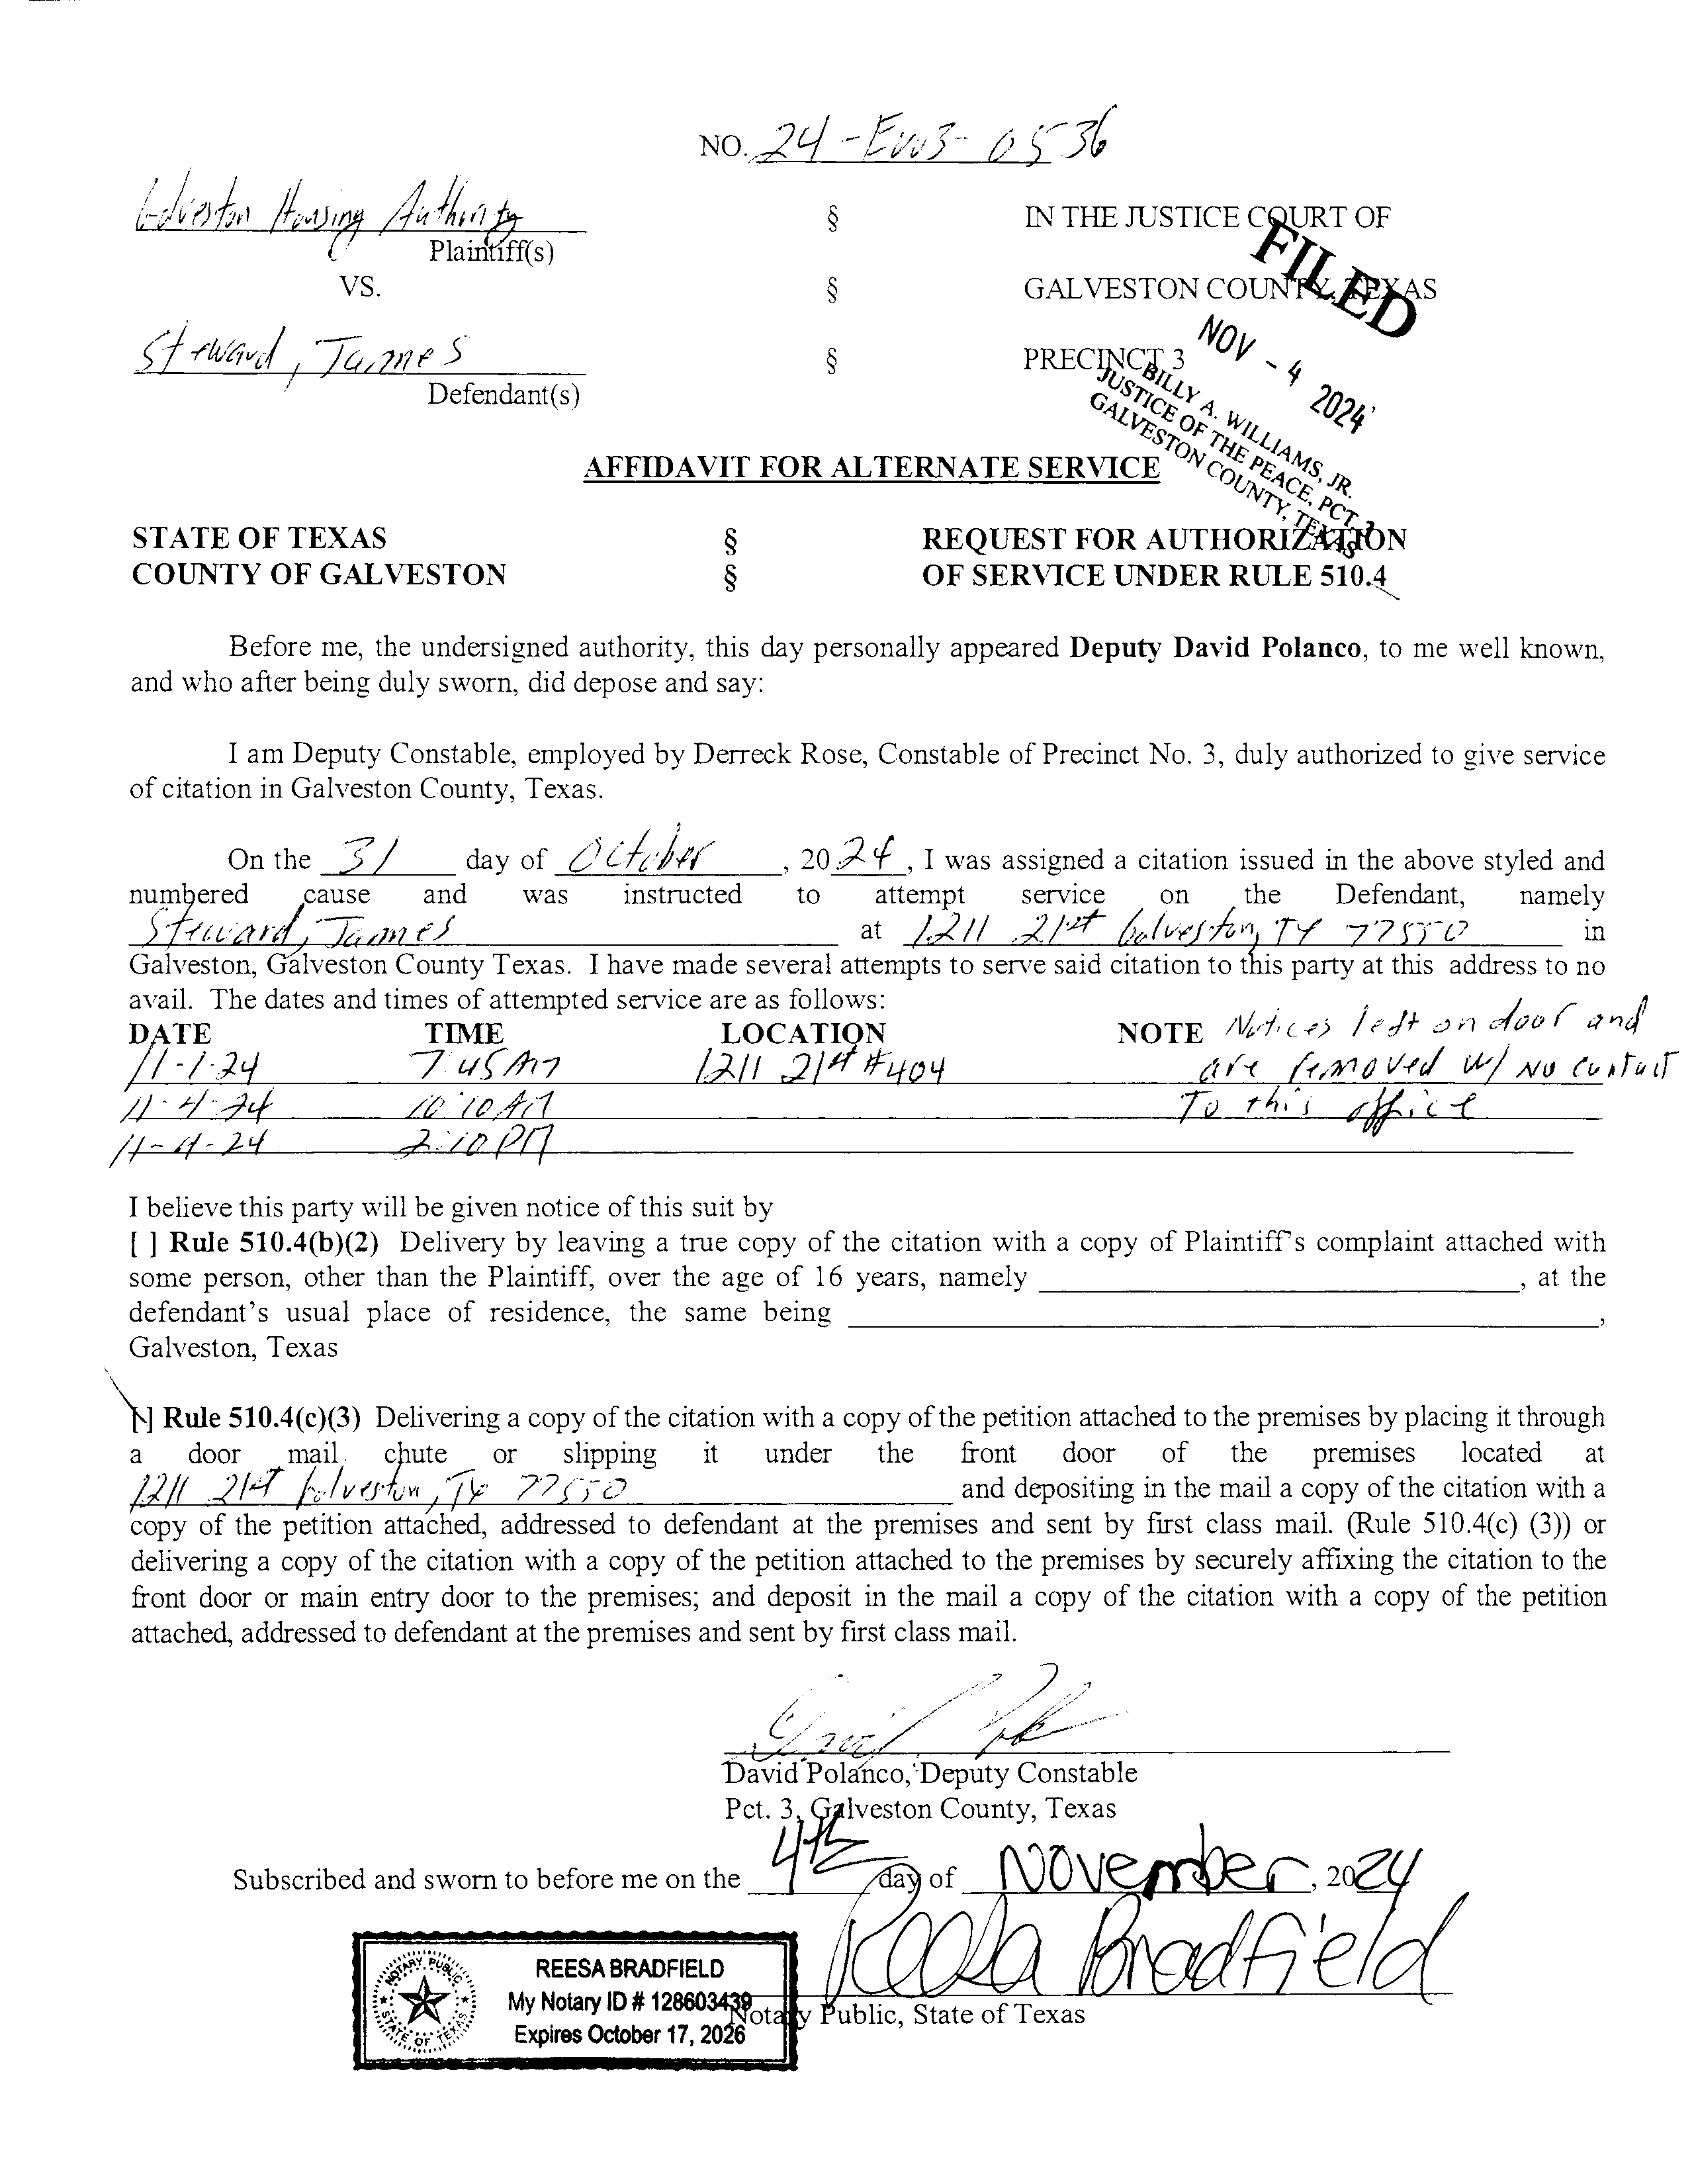 NO. 24-EVV3-0536
Galveston Housing Authority § IN THE JUSTICE COURT OF
Plaintiff(s)
FILED
VS. § GALVESTON COUNTY, TEXAS
Steward, James § PRECINCT 3
Defendant(s)
NOV - 4 2024
BILLY A. WILLIAMS, JR.
JUSTICE OF THE PEACE, PCT. 3
GALVESTON COUNTY, TEXAS
AFFIDAVIT FOR ALTERNATE SERVICE
STATE OF TEXAS § REQUEST FOR AUTHORIZATION
COUNTY OF GALVESTON § OF SERVICE UNDER RULE 510.4
Before me, the undersigned authority, this day personally appeared Deputy David Polanco, to me well known,
and who after being duly sworn, did depose and say:
I am Deputy Constable, employed by Derreck Rose, Constable of Precinct No. 3, duly authorized to give service
of citation in Galveston County, Texas.
On the 31 day of October, 2024, I was assigned a citation issued in the above styled and
numbered cause and was instructed to attempt service on the Defendant, namely
Steward, James at 1211 21st Galveston, TX 77550 in
Galveston, Galveston County Texas. I have made several attempts to serve said citation to this party at this address to no
avail. The dates and times of attempted service are as follows:
DATE TIME LOCATION NOTE Notices left on door and
11-1-24 7:45 AM 1211 21st #404 are removed w/ No contact
11-4-24 10:10 AM To this office
11-4-24 2:10 PM
I believe this party will be given notice of this suit by
[ ] Rule 510.4(b)(2) Delivery by leaving a true copy of the citation with a copy of Plaintiff's complaint attached with
some person, other than the Plaintiff, over the age of 16 years, namely ____, at the
defendant's usual place of residence, the same being ____,
Galveston, Texas
[\] Rule 510.4(c)(3) Delivering a copy of the citation with a copy of the petition attached to the premises by placing it through
a door mail chute or slipping it under the front door of the premises located at
1211 21st Galveston, TX 77550 and depositing in the mail a copy of the citation with a
copy of the petition attached, addressed to defendant at the premises and sent by first class mail. (Rule 510.4(c) (3)) or
delivering a copy of the citation with a copy of the petition attached to the premises by securely affixing the citation to the
front door or main entry door to the premises; and deposit in the mail a copy of the citation with a copy of the petition
attached, addressed to defendant at the premises and sent by first class mail.
David Polanco, Deputy Constable
Pct. 3, Galveston County, Texas
Subscribed and sworn to before me on the 4th day of November, 2024
Reesa Bradfield
Notary Public, State of Texas
NOTARY PUBLIC
STATE OF TEXAS
REESA BRADFIELD
My Notary ID # 128603439
Expires October 17, 2026